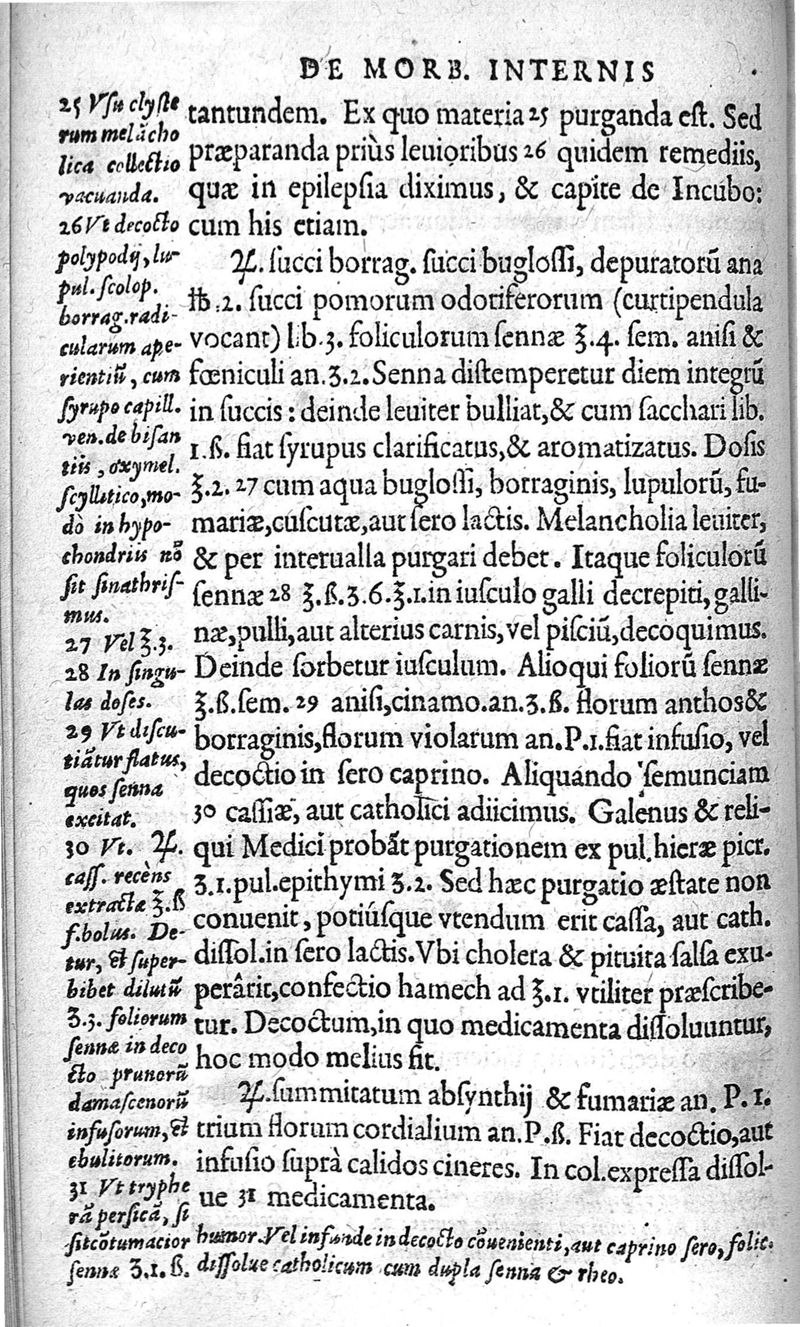 DE MORB. INTERNIS
tantundem. Ex quo materia 25 purganda est. Sed
præparanda priùs leuioribus 26 quidem remediis,
quæ in epilepsia diximus, & capite de Incubo:
cum his etiam.
℞. succi borrag. succi buglossi, depuratorũ ana
℔.2. succi pomorum odoriferorum (curtipendula
vocant) lib.3. foliculorum sennæ ℥.4. sem. anisi &
fœniculi an.ʒ.2. Senna distemperetur diem integrũ
in succis: deinde leuiter bulliat, & cum sacchari lib.
1.ß. fiat syrupus clarificatus, & aromatizatus. Dosis
℥.2. 27 cum aqua buglossi, borraginis, lupulorũ, fu-
mariæ, cuscutæ, aut sero lactis. Melancholia leuiter,
& per interualla purgari debet. Itaque foliculorũ
sennæ 28 ℥.ß.ʒ.6.℥.1. in iusculo galli decrepiti, galli-
næ, pulli, aut alterius carnis, vel pisciũ, decoquimus.
Deinde sorbetur iusculum. Alioqui foliorũ sennæ
℥.ß. sem. 29 anisi, cinamo. an.ʒ.ß. florum anthos &
borraginis, florum violarum an.P.1. fiat infusio, vel
decoctio in sero caprino. Aliquando semunciam
30 cassiæ, aut catholici adiicimus. Galenus & reli-
qui Medici probãt purgationem ex pul. hieræ picr.
ʒ.1. pul. epithymi ʒ.2. Sed hæc purgatio æstate non
conuenit, potiúsque vtendum erit cassa, aut cath.
dissol. in sero lactis. Vbi cholera & pituita salsa exu-
perârit, confectio hamech ad ℥.1. vtiliter præscribe-
tur. Decoctum, in quo medicamenta dissoluuntur,
hoc modo melius fit.
℞. summitatum absynthij & fumariæ an. P.1.
trium florum cordialium an.P.ß. Fiat decoctio, aut
infusio suprà calidos cineres. In col. expressa dissol-
ue 31 medicamenta.
25 Vsu clyste
rum melãcho
lica collectio
vacuanda.
26 Vt decocto
polypodij, lu-
pul. scolop.
borrag. radi-
cularum ape-
rientiũ, cum
syrupo capill.
ven. de bisan
tiis, oxymel.
scyllitico, mo-
dò in hypo-
chondriis nõ
sit sinathris-
mus.
27 Vel ℥.3.
28 In singu-
las doses.
29 Vt discu-
tiãtur flatus,
quos senna
excitat.
30 Vt. ℞.
cass. recèns
extractæ ℥.ß
f. bolus. De-
tur, & super-
bibet dilutũ
ʒ.3. foliorum
sennæ in deco
cto prunorũ
damascenorũ
infusorum, &
ebulitorum.
31 Vt tryphe
rã persicã, si
sit cõtumacior humor. Vel infunde in decocto cõuenienti, aut caprino sero, folic.
sennæ ʒ.1.ß. dissolue catholicum cum dupla senna & rheo.